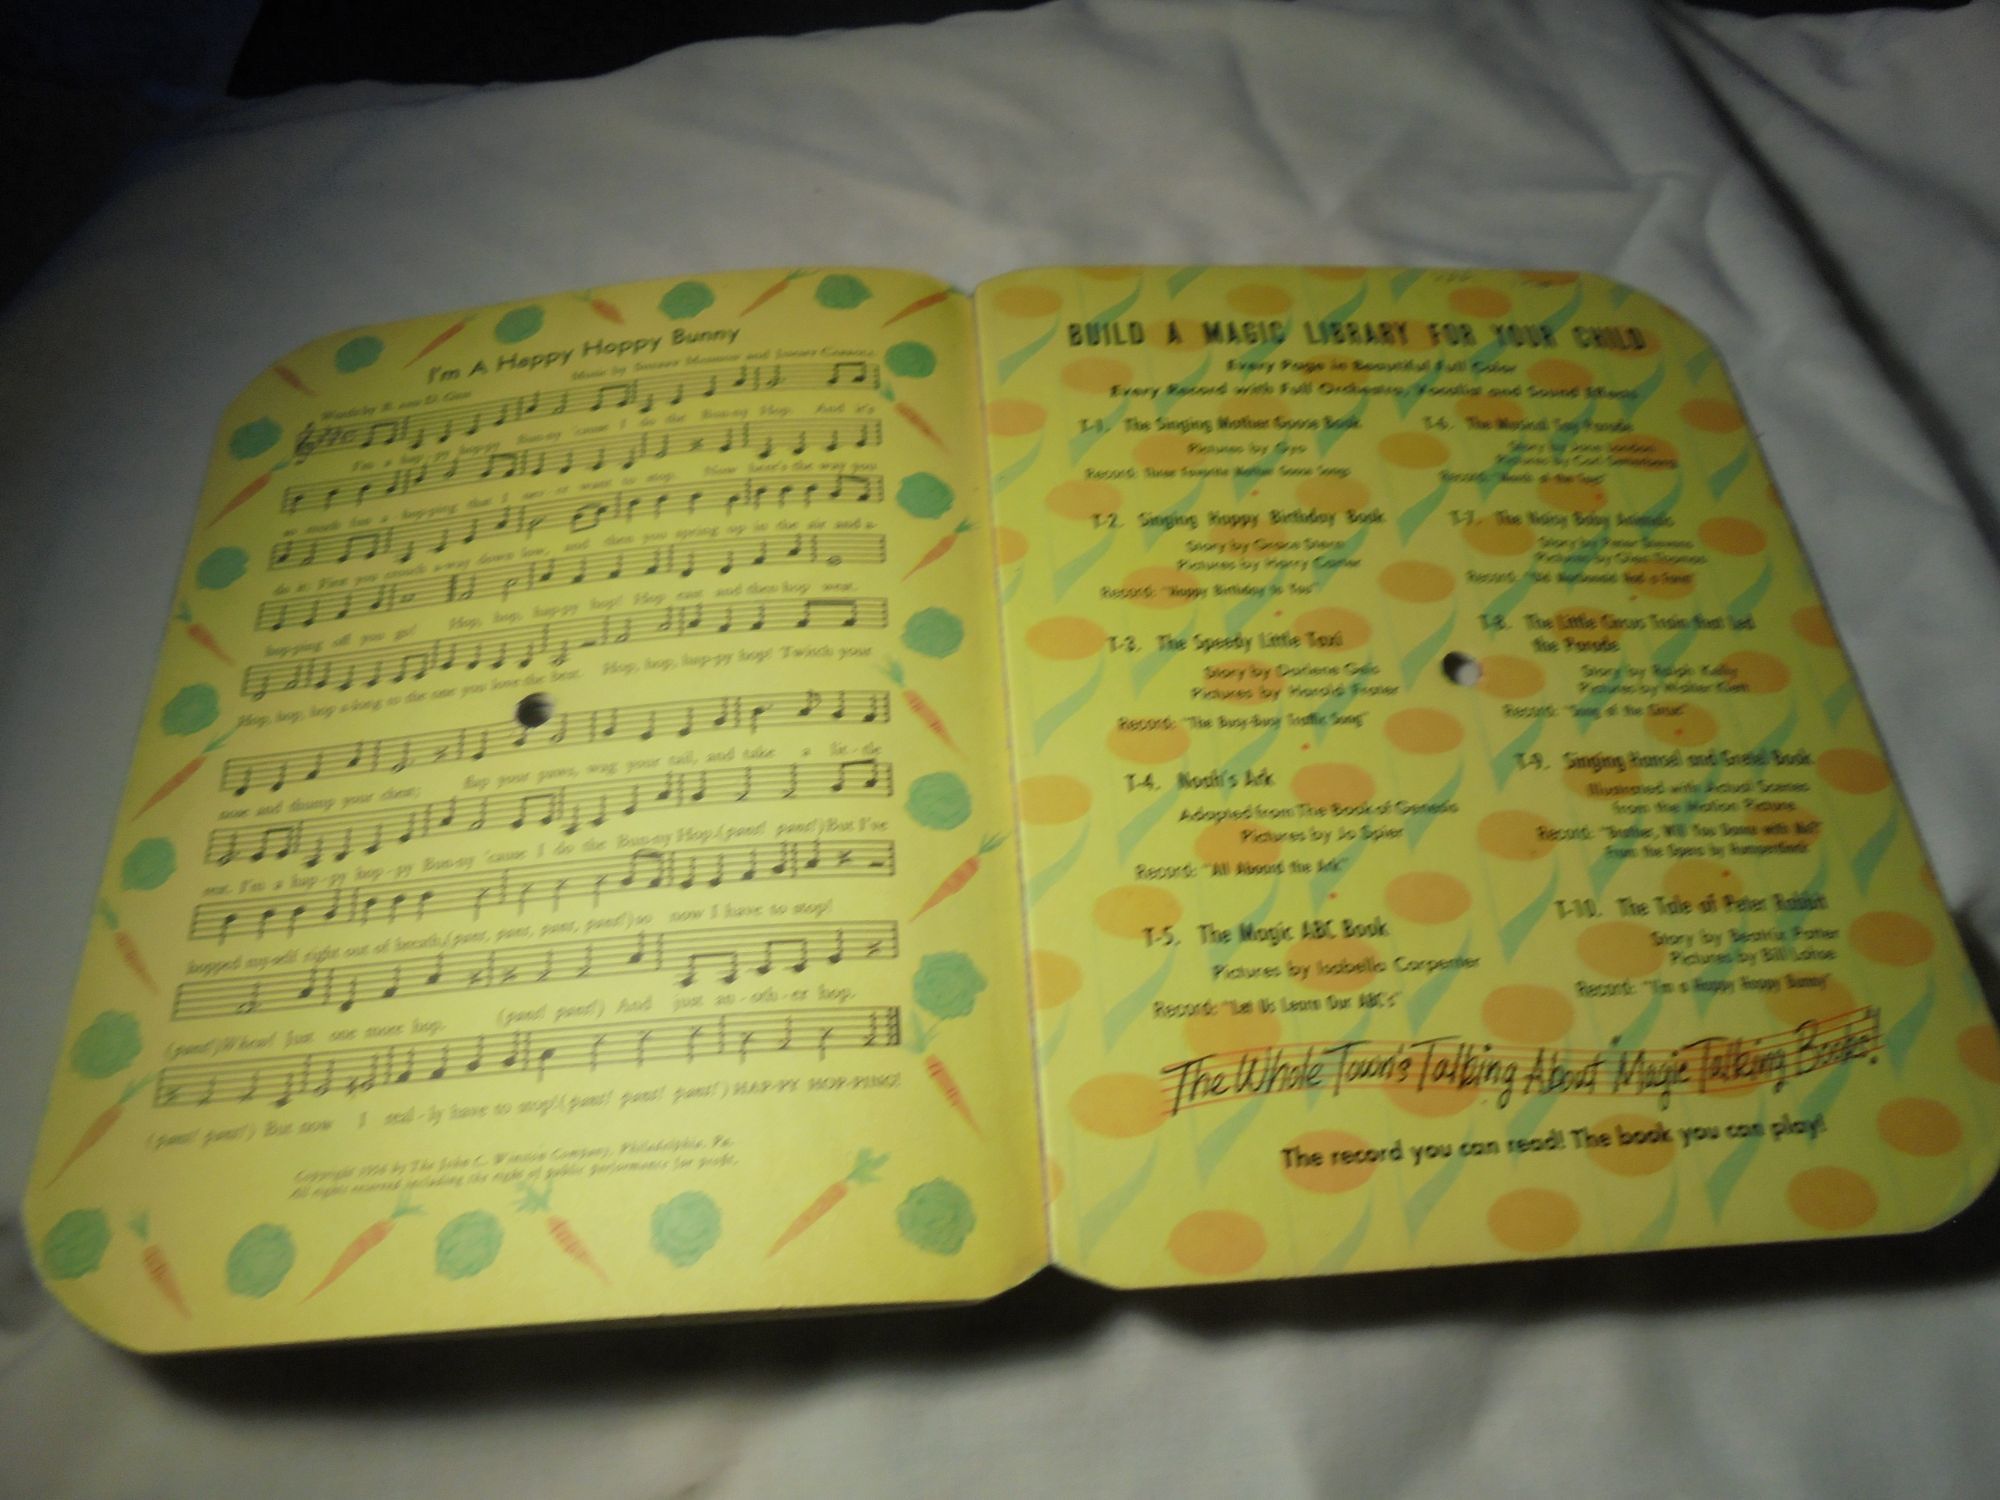 I'm A Happy Hoppy Bunny
Words by
Music by
I'm a hap-py hop-py Bun-ny 'cause I do the Bun-ny Hop. And it's
so much fun a hop-ping that I nev-er want to stop. Now here's the way you
do it: First you crouch a-way down low, and then you spring up in the air and a-
hop-ping off you go! Hop, hop, hap-py hop! Hop east and then hop west.
Hop, hop, hop a-long to the one you love the best. Hop, hop, hap-py hop! Twitch your
nose and thump your chest; flap your paws, wag your tail, and take a lit-tle
rest. I'm a hap-py hop-py Bun-ny 'cause I do the Bun-ny Hop.(pant! pant!) But I've
hopped my-self right out of breath,(pant, pant, pant, pant!) so now I have to stop!
(pant!) Whew! Just one more hop. (pant! pant!) And just an-oth-er hop.
(pant! pant!) But now I real-ly have to stop! (pant! pant! pant!) HAP-PY HOP-PING!
Copyright 1956 by The John C. Winston Company, Philadelphia, Pa.
All rights reserved including the right of public performance for profit.
BUILD A MAGIC LIBRARY FOR YOUR CHILD
Every Page in Beautiful Full Color
Every Record with Full Orchestra, Vocalist and Sound Effects
T-1. The Singing Mother Goose Book
Pictures by Gyo
Record: Three Favorite Mother Goose Songs
T-2. Singing Happy Birthday Book
Story by Grace
Pictures by Harry
Record: "Happy Birthday to You"
T-3. The Speedy Little Taxi
Story by Darlene Geis
Pictures by Harold
Record: "The Busy-Busy Traffic Song"
T-4. Noah's Ark
Adapted from The Book of Genesis
Pictures by Jo Spier
Record: "All Aboard the Ark"
T-5. The Magic ABC Book
Pictures by Isabella Carpenter
Record: "Let Us Learn Our ABC's"
T-6. The Musical Toy Parade
Story by Jane
Pictures by Carl
Record: "March of the Toys"
T-7. The Noisy Baby Animals
Story by Peter Stevens
Pictures by Glen Thomas
Record: "Old Macdonald Had a Farm"
T-8. The Little Circus Train that Led
the Parade
Story by Ralph Kelly
Pictures by Walter
Record: "Song of the Circus"
T-9. Singing Hansel and Gretel Book
Illustrated with Actual Scenes
from the Motion Picture
Record: "Brother, Will You Dance with Me?"
From the Opera by Humperdinck
T-10. The Tale of Peter Rabbit
Story by Beatrix Potter
Pictures by Bill
Record: "I'm a Happy Hoppy Bunny"
The Whole Town's Talking About Magic Talking Books!
The record you can read! The book you can play!